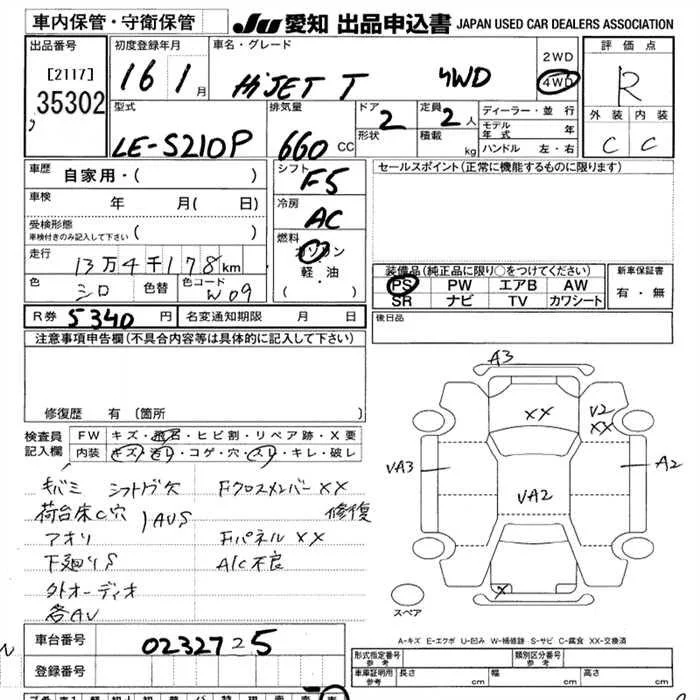 車内保管・守衛保管
JU 愛知 出品申込書 JAPAN USED CAR DEALERS ASSOCIATION
出品番号
[2117]
35302
初度登録年月
16 1月
車名・グレード
HiJET T 4WD
2WD
4WD
評価点
R
外装 内装
C C
型式
LE-S210P
排気量
660 CC
ドア 2
形状
定員 2 人
積載 kg
ディーラー・並行
モデル年式 年
ハンドル 左・右
車歴 自家用・( )
車検 年 月( 日)
受検形態
車検付きのみ記入して下さい ( )
走行
13万4千178km
色 シロ 色替 色コード W09
シフト
F5
冷房
AC
燃料
ガソリン
軽・油
( ・ )
セールスポイント(正常に機能するものに限ります)
装備品(純正品に限り○をつけてください)
PS PW エアB AW
SR ナビ TV カワシート
新車保証書
有・無
R券 5340 円 名変通知期限 月 日
後日品
注意事項申告欄(不具合内容等は具体的に記入して下さい)
修復歴 有 〔箇所 〕
検査員記入欄
FW キズ・飛石・ヒビ割・リペア跡・X要
内装 キズ・汚レ・コゲ・穴・スレ・キレ・破レ
キバミ シフトノブ欠 FクロスメンバーXX
荷台床C穴 AUS 修復
アオリ FパネルXX
下廻りS A/C不良
外オーディオ
各AU
A3
XX
V2
XX
VA3
A2
VA2
X
スペア
A-キズ E-エクボ U-凹み W-補修跡 S-サビ C-腐食 XX-交換済
車台番号 0232725
登録番号
形式指定番号 参考
類別区分番号 参考
車庫証明用 参考 長さ cm 幅 cm 高さ cm